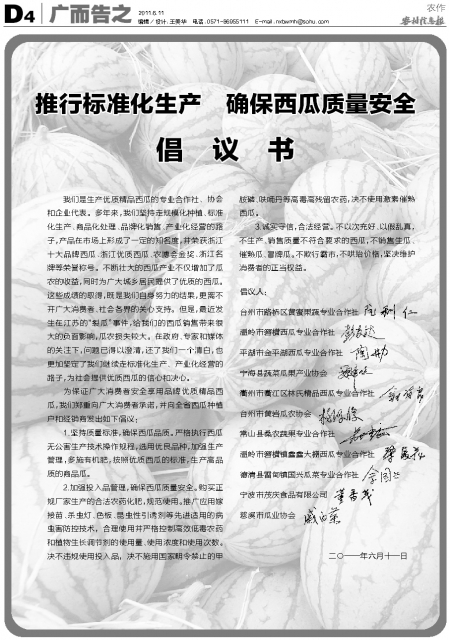 D4
广而告之
2011.6.11
编辑/设计:王美华 电话:0571-86955111 E-mail:nxbwmh@sohu.com
农作
农村信息报
推行标准化生产 确保西瓜质量安全
倡议书
我们是生产优质精品西瓜的专业合作社、协会
和企业代表。多年来,我们坚持走规模化种植、标准
化生产、商品化处理、品牌化销售、产业化经营的路
子,产品在市场上形成了一定的知名度,并荣获浙江
十大品牌西瓜、浙江优质西瓜、农博会金奖、浙江名
牌等荣誉称号。不断壮大的西瓜产业不仅增加了瓜
农的收益,同时为广大城乡居民提供了优质的西瓜。
这些成绩的取得,既是我们自身努力的结果,更离不
开广大消费者、社会各界的关心支持。但是,最近发
生在江苏的“裂瓜”事件,给我们的西瓜销售带来很
大的负面影响,瓜农损失较大。在政府、专家和媒体
的关注下,问题已得以澄清,还了我们一个清白,也
更加坚定了我们继续走标准化生产、产业化经营的
路子,为社会提供优质西瓜的信心和决心。
为保证广大消费者安全享用品牌优质精品西
瓜,我们郑重向广大消费者承诺,并向全省西瓜种植
户和经销商发出如下倡议:
1.坚持质量标准,确保西瓜品质。严格执行西瓜
无公害生产技术操作规程,选用优良品种,加强生产
管理,多施有机肥,按照优质西瓜的标准,生产高品
质的商品瓜。
2.加强投入品管理,确保西瓜质量安全。购买正
规厂家生产的合法农药化肥,规范使用。推广应用嫁
接苗、杀虫灯、色板、昆虫性引诱剂等先进适用的病
虫害防控技术。合理使用并严格控制高效低毒农药
和植物生长调节剂的使用量、使用浓度和使用次数。
决不违规使用投入品,决不施用国家明令禁止的甲
胺磷、呋喃丹等高毒高残留农药,决不使用激素催熟
西瓜。
3.诚实守信,合法经营。不以次充好、以假乱真,
不生产、销售质量不符合要求的西瓜;不销售生瓜、
催熟瓜、冒牌瓜。不欺行霸市,不哄抬价格,坚决维护
消费者的正当权益。
倡议人:
台州市路桥区黄蜜果蔬专业合作社
温岭市箬横西瓜专业合作社
平湖市金平湖西瓜专业合作社
宁海县蔬菜瓜果产业协会
衢州市衢江区林氏精品西瓜专业合作社
台州市黄岩瓜农协会
常山县桑农蔬果专业合作社
温岭市箬横镇鑫鑫大棚西瓜专业合作社
德清县雷甸镇国兴瓜菜专业合作社
宁波市茂庆食品有限公司
慈溪市瓜业协会
二〇一一年六月十一日